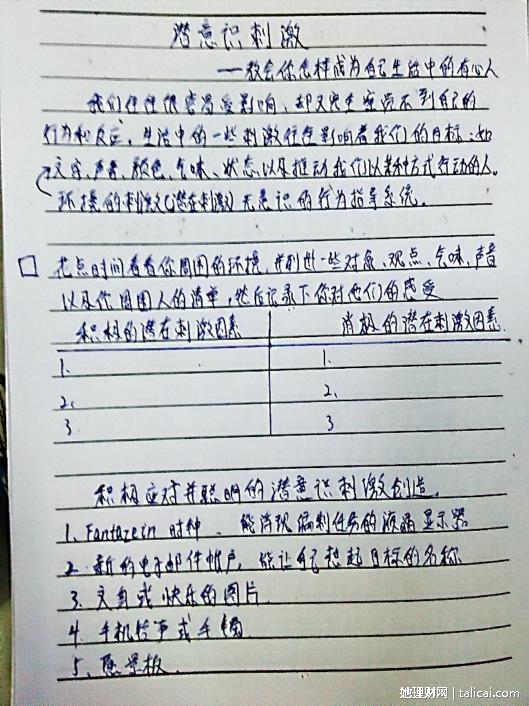 潜意识刺激
——教会你怎样成为自己生活中的有心人
我们往往很容易受影响,却又完全察觉不到自己的
行为和反应。生活中的一些刺激往往影响着我们的目标:如
文字、声音、颜色、气味、状态以及推动我们以某种方式行动的人。
环境的刺激(潜在刺激)无意识的行为指导系统。
花点时间看看你周围的环境,并列出一些对象、观点、气味、声音
以及你周围人的清单,然后记录下你对他们的感受
积极的潜在刺激因素 消极的潜在刺激因素
1、 1、
2、 2、
3 3
积极应对并聪明的潜意识刺激创造。
1、Fantazein 时钟、能消现编制任务的液晶显示器
2、新的电子邮件帐户,能让自己想起目标的名称
3、文身或快乐的图片
4、手机铃声或手镯
5、愿景板
她理财网 | talicai.com